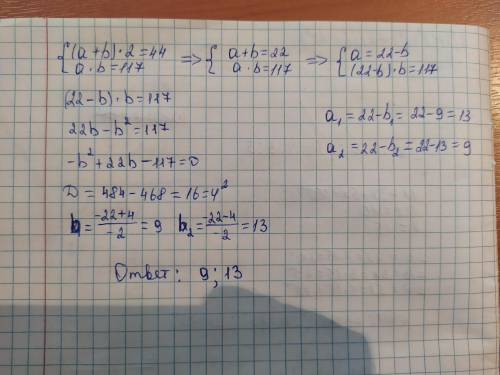 {(a+b)·2=44 => {a+b=22 => {a=22-b
{a·b=117 {a·b=117 {(22-b)·b=117
(22-b)·b=117
22b-b²=117
-b²+22b-117=0
D=484-468=16=4²
b=(-22+4)/-2=9 b₂=(22-4)/-2=13
a₁=22-b₁=22-9=13
a₂=22-b₂=22-13=9
Ответ: 9; 13